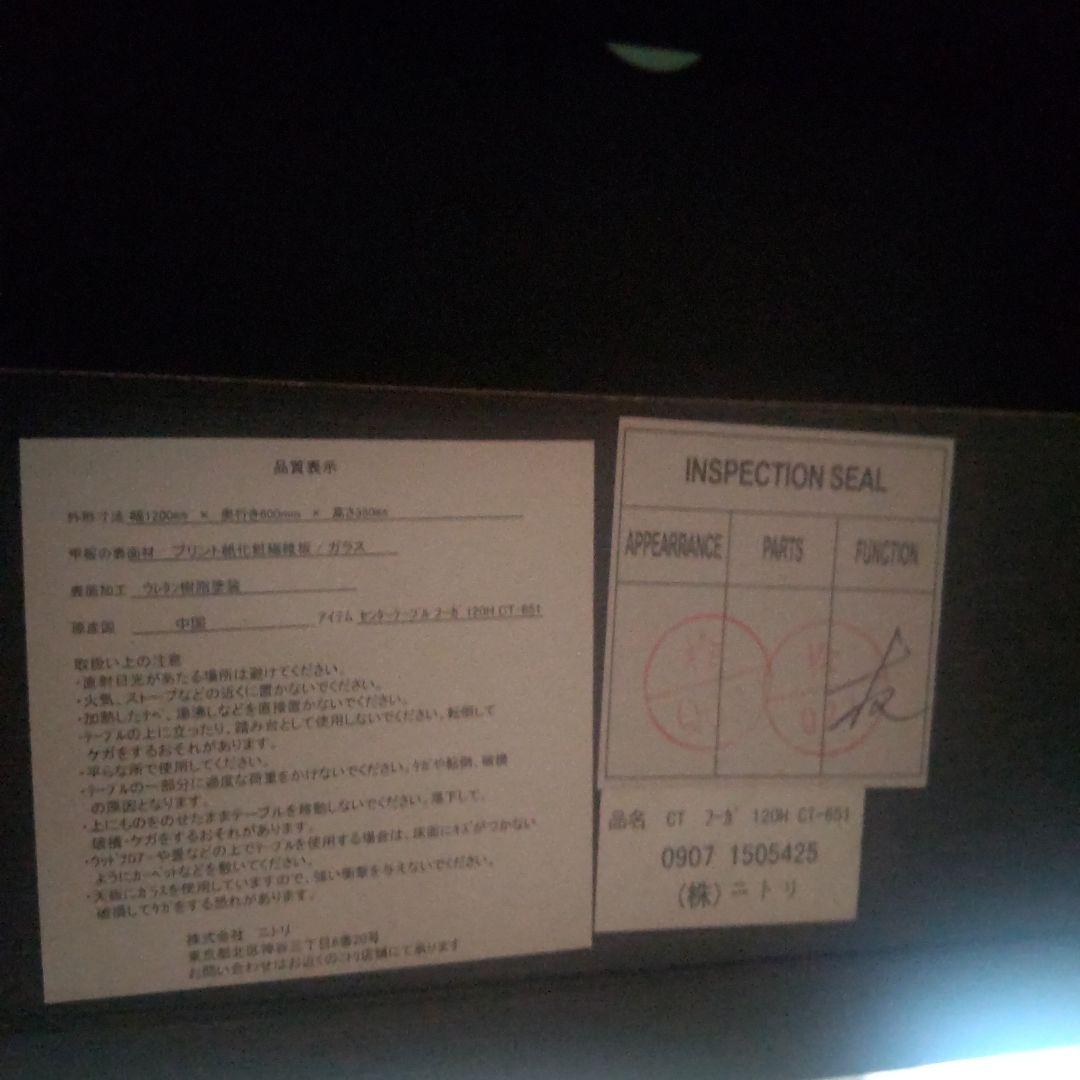 品質表示
外形寸法 幅1200mm × 奥行き600mm × 高さ380mm
甲板の表面材 プリント紙化粧繊維板／ガラス
表面加工 ウレタン樹脂塗装
原産国 中国 アイテム センターテーブル フーガ 120H CT-651
取扱い上の注意
・直射日光があたる場所は避けてください。
・火気、ストーブなどの近くに置かないでください。
・加熱したナベ、湯沸しなどを直接置かないでください。
・テーブルの上に立ったり、踏み台として使用しないでください。転倒して
ケガをするおそれがあります。
・平らな所で使用してください。
・テーブルの一部分に過度な荷重をかけないでください。ケガや転倒、破損
の原因となります。
・上にものをのせたままテーブルを移動しないでください。落下して、
破損・ケガをするおそれがあります。
・ウッドフロアーや畳などの上でテーブルを使用する場合は、床面にキズがつかない
ようにカーペットなどを敷いてください。
・天板にガラスを使用していますので、強い衝撃を与えないでください。
破損してケガをする恐れがあります。
株式会社 ニトリ
東京都北区神谷三丁目6番20号
お問い合わせはお近くのニトリ店舗にて承ります
INSPECTION SEAL
APPEARRANCE PARTS FUNCTION
品名 CT フーガ 120H CT-651
0907 1505425
(株)ニトリ